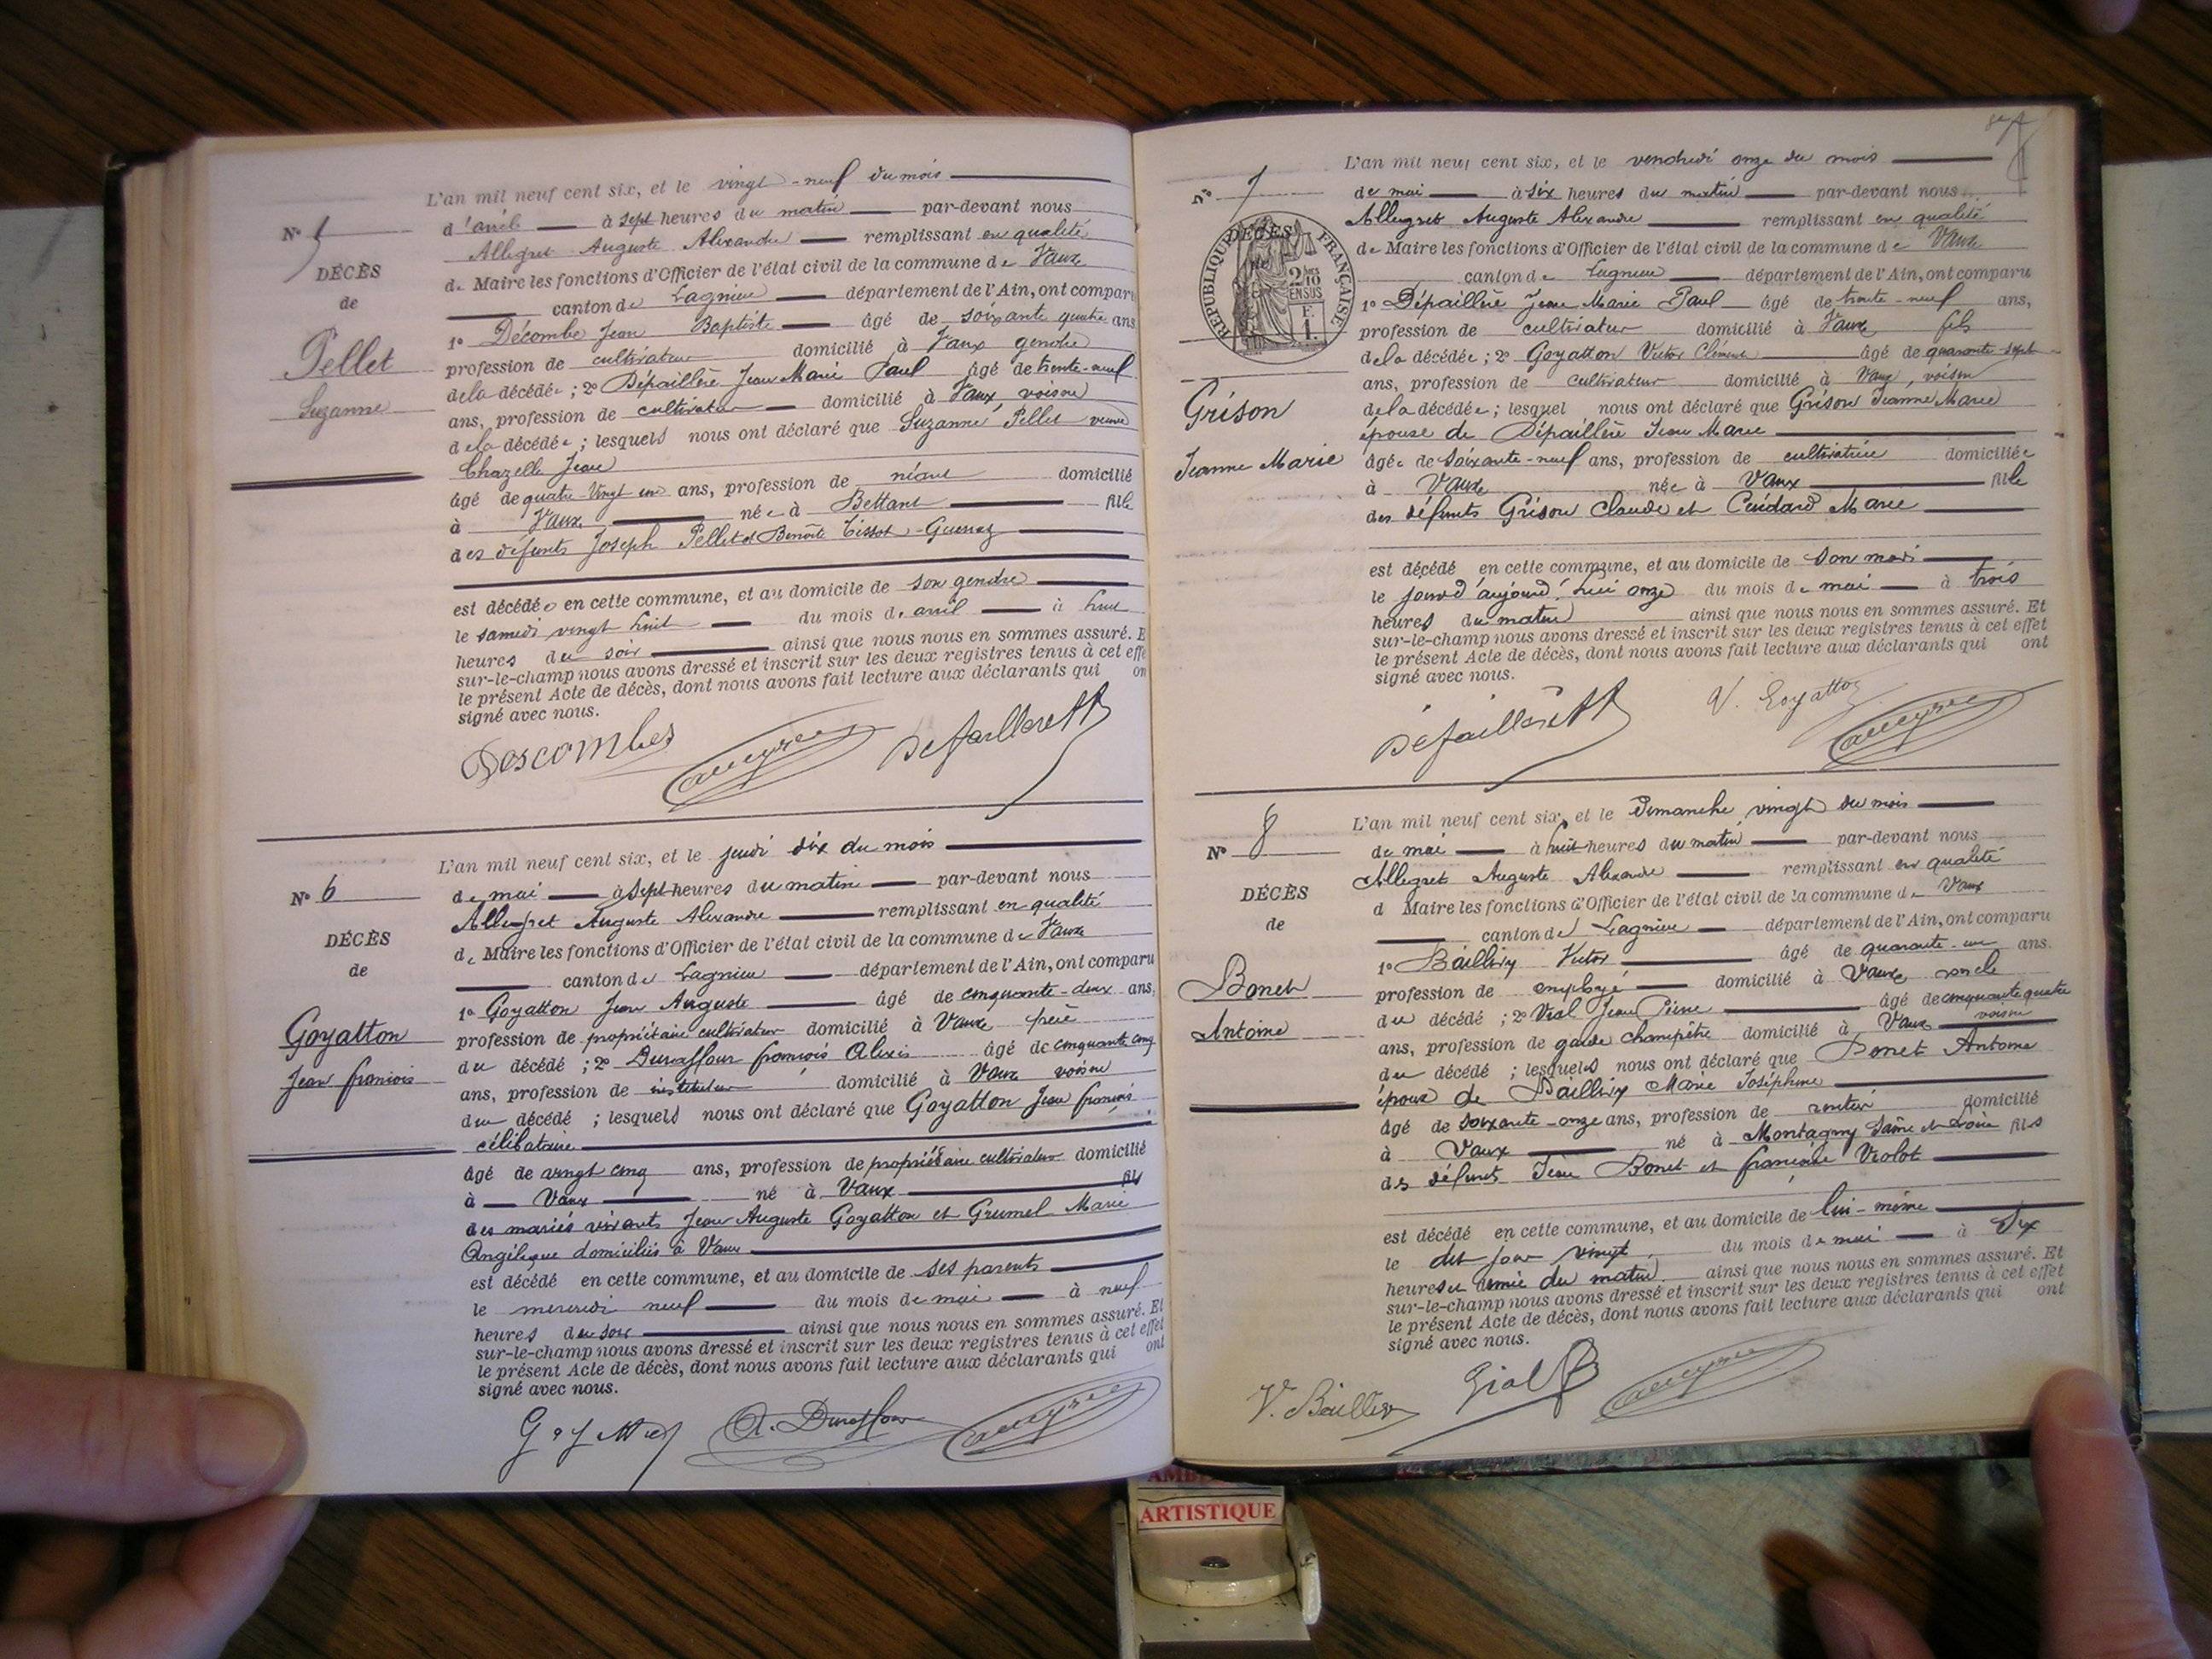 L'an mil neuf cent six, et le vingt-neuf du mois
N° 5
d'avril à sept heures du matin par-devant nous
Allegret Auguste Alexandre remplissant en qualité
DÉCÈS
de Maire les fonctions d'Officier de l'état civil de la commune de Vaux
de
canton de Lagnieu département de l'Ain, ont comparu
1° Décombe Jean Baptiste âgé de soixante quatre ans
Pellet
profession de cultivateur domicilié à Vaux gendre
Suzanne
de la décédée; 2° Dépaillère Jean Marie Paul âgé de trente-neuf
ans, profession de cultivateur domicilié à Vaux, voisin
de la décédée; lesquels nous ont déclaré que Suzanne Pellet veuve
Chazelle Jean
âgé de quatre-vingt un ans, profession de néant domicilié
à Vaux née à Bettant fille
des défunts Joseph Pellet et Benoîte Tissot-Guerraz
est décédée en cette commune, et au domicile de son gendre
le samedi vingt huit du mois d'avril à huit
heures du soir ainsi que nous nous en sommes assuré. E
sur-le-champ nous avons dressé et inscrit sur les deux registres tenus à cet effe
le présent Acte de décès, dont nous avons fait lecture aux déclarants qui on
signé avec nous.
Descombes
L'an mil neuf cent six, et le jeudi dix du mois
N° 6
de mai à sept heures du matin par-devant nous
Allegret Auguste Alexandre remplissant en qualité
DÉCÈS
de Maire les fonctions d'Officier de l'état civil de la commune de Vaux
de
canton de Lagnieu département de l'Ain, ont comparu
1° Goyatton Jean Auguste âgé de cinquante-deux ans,
Goyatton
profession de propriétaire cultivateur domicilié à Vaux père
Jean françois
du décédé ; 2° Duraffour françois Alexis âgé de cinquante cinq
ans, profession de instituteur domicilié à Vaux voisin
du décédé ; lesquels nous ont déclaré que Goyatton Jean françois
célibataire
âgé de vingt cinq ans, profession de propriétaire cultivateur domicilié
à Vaux né à Vaux fils
des mariés vivants Jean Auguste Goyatton et Grumel Marie
Angélique domiciliés à Vaux
est décédé en cette commune, et au domicile de ses parents
le mercredi neuf du mois de mai à neuf
heures du soir ainsi que nous nous en sommes assuré. Et
sur-le-champ nous avons dressé et inscrit sur les deux registres tenus à cet effet
le présent Acte de décès, dont nous avons fait lecture aux déclarants qui ont
signé avec nous.
A. Duraffour
L'an mil neuf cent six, et le vendredi onze du mois
N° 7
de mai à six heures du matin par-devant nous
Allegret Auguste Alexandre remplissant en qualité
DÉCÈS
RÉPUBLIQUE FRANÇAISE
2/10 EN SUS
F. 1.
de Maire les fonctions d'Officier de l'état civil de la commune de Vaux
canton de Lagnieu département de l'Ain, ont comparu
1° Dépaillère Jean Marie Paul âgé de trente-neuf ans,
profession de cultivateur domicilié à Vaux fils
de la décédée; 2° Goyatton Victor Clément âgé de quarante-sept
ans, profession de cultivateur domicilié à Vaux, voisin
Grison
de la décédée; lesquel nous ont déclaré que Grison Jeanne Marie
épouse de Dépaillère Jean Marie
Jeanne Marie
âgée de soixante-neuf ans, profession de cultivatrice domiciliée
à Vaux née à Vaux fille
des défunts Grison Claude et Marie
est décédé en cette commune, et au domicile de son mari
le jour d'aujourd'hui onze du mois de mai à trois
heures du matin ainsi que nous nous en sommes assuré. Et
sur-le-champ nous avons dressé et inscrit sur les deux registres tenus à cet effet
le présent Acte de décès, dont nous avons fait lecture aux déclarants qui ont
signé avec nous.
V. Goyatton
L'an mil neuf cent six, et le Dimanche vingt du mois
N° 8
de mai à huit heures du matin par-devant nous
Allegret Auguste Alexandre remplissant en qualité
DÉCÈS
d Maire les fonctions d'Officier de l'état civil de la commune de Vaux
de
canton de Lagnieu département de l'Ain, ont comparu
1° Baillivy Victor âgé de quarante-un ans.
Bonet
profession de employé domicilié à Vaux oncle
du décédé ; 2° Vial Jean Pierre âgé de cinquante quatre
Antoine
ans, profession de garde champêtre domicilié à Vaux voisin
du décédé ; lesquels nous ont déclaré que Bonet Antoine
époux de Baillivy Marie Joséphine
âgé de soixante-onze ans, profession de rentier domicilié
à Vaux né à Montagny Saône et Loire fils
des défunts Jean Bonet et françoise Violot
est décédé en cette commune, et au domicile de lui-même
le dit jour vingt du mois de mai à six
heures et demie du matin ainsi que nous nous en sommes assuré. Et
sur-le-champ nous avons dressé et inscrit sur les deux registres tenus à cet effet
le présent Acte de décès, dont nous avons fait lecture aux déclarants qui ont
signé avec nous.
V. Baillivy
ARTISTIQUE